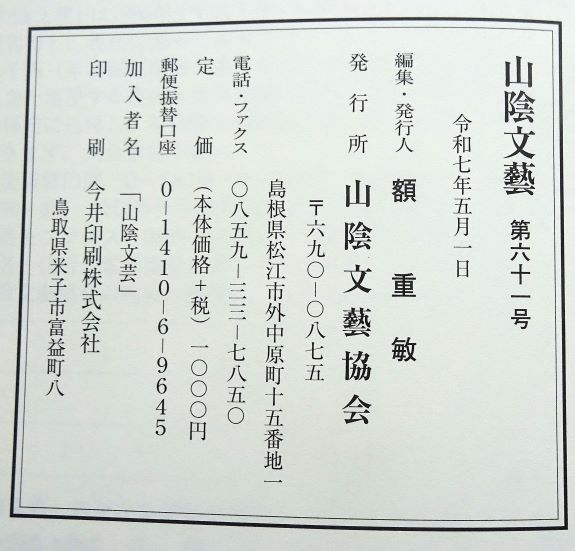 山陰文藝 第六十一号
令和七年五月一日
編集・発行人 額 重敏
発行所 山陰文藝協会
〒六九〇―〇八七五
島根県松江市外中原町十五番地一
電話・ファクス 〇八五九―三三―七八五〇
定価 （本体価格＋税）一〇〇〇円
郵便振替口座 0―1410―6―9645
加入者名 「山陰文芸」
印刷 今井印刷株式会社
鳥取県米子市富益町八